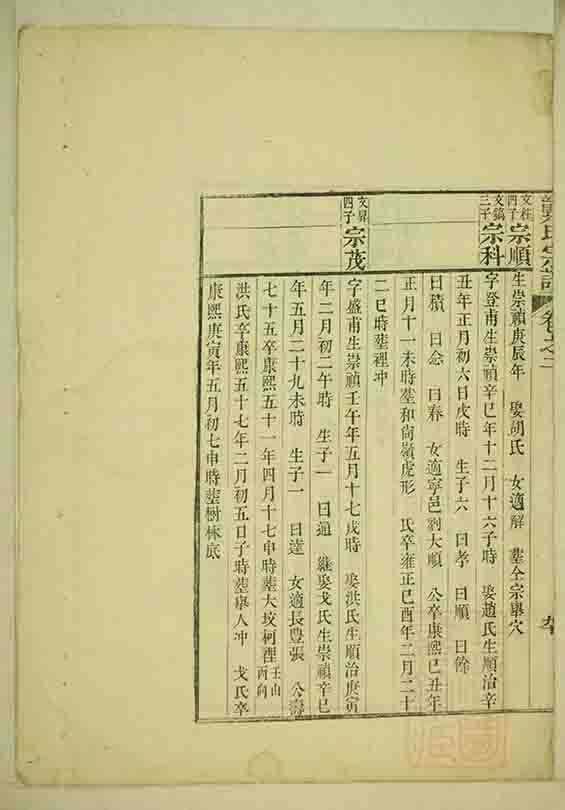 氏宗譜 卷之二
文柱四子 宗順 生崇禎庚辰年 娶胡氏 女適解 塟仝宗舉穴
文鎬三子 宗科 字登甫生崇禎辛巳年十二月十六子時 娶趙氏生順治辛
丑年正月初六日戌時 生子六 曰孝 曰順 曰餘
曰積 曰念 曰春 女適寧邑劉大順 公卒康熙己丑年
正月十一未時塟和尚嶺虎形 氏卒雍正己酉年二月二十
二巳時塟裡冲
文昇四子 宗茂 字盛甫生崇禎壬午年五月十七戌時 娶洪氏生順治庚寅
年二月初二午時 生子一 曰通 繼娶戈氏生崇禎辛巳
年五月二十九未時 生子一 曰達 女適長豊張 公壽
七十五卒康熙五十一年四月十七申時塟大坟柯裡壬山丙向
洪氏卒康熙五十七年二月初五日子時塟舉人冲 戈氏卒
康熙庚寅年五月初七申時塟樹林底